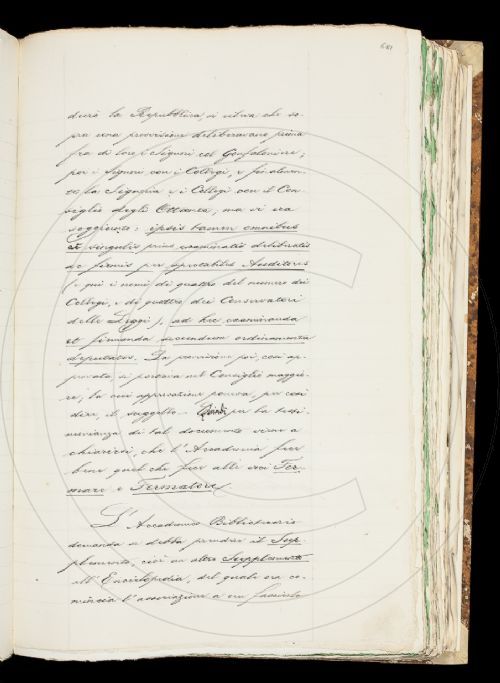 681
durò la Repubblica, si usava che so-
pra una provvisione deliberavano prima
fra di loro, i Signori col Gonfaloniere;
poi i Signori con i Collegi, e finalmen-
te, la Signoria e i Collegi con il Con-
siglio degli Ottanta; ma vi era
soggiunto: ipsis tamen omnibus
et singulis prius examinatis deliberatis
ac firmis per spectabiles Auditores
(e qui i nomi di quattro del numero dei
Collegi, e di quattro dei Conservatori
delle Leggi), ad hec examinanda
et firmanda secundum ordinamenta
deputatos. La provvisione poi, così ap-
provata, si portava nel Consiglio maggio-
re, la cui approvazione poneva, per così
dire, il suggello. Quindi per la testi-
monianza di tal documento viene a
chiarirsi, che l'Accademia fece
bene quel che fece alle voci Fer-
mare e Fermatore.
L'Accademico Bibliotecario
domanda se debba prendere il Sup-
plemento, cioè un altro Supplemento
all'Enciclopedia, del quale ora co-
mincia l'associazione a un fascicolo